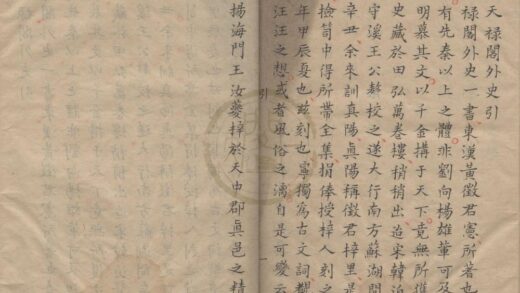 天祿閣外史引
祿閣外史一書東漢黃徵君憲所著也
有先秦以上之體非劉向楊雄軰可及
明慕其文以千金搆于天下竟無所獲
史藏於田弘萬卷樓稍稍出迨宋韓洎
守溪王公敎校之遂大行南方蘇湖間
辛丑余來訓真陽真陽稱徵君梓里是
撿笥中得所帶全集捐俸授梓人刻之
年甲辰夏也玆刻也寧獨為古文詞
汪汪之想或者風俗之漓自是可變云
引 一
揚海門王汝夔梓於天中郡真邑之精